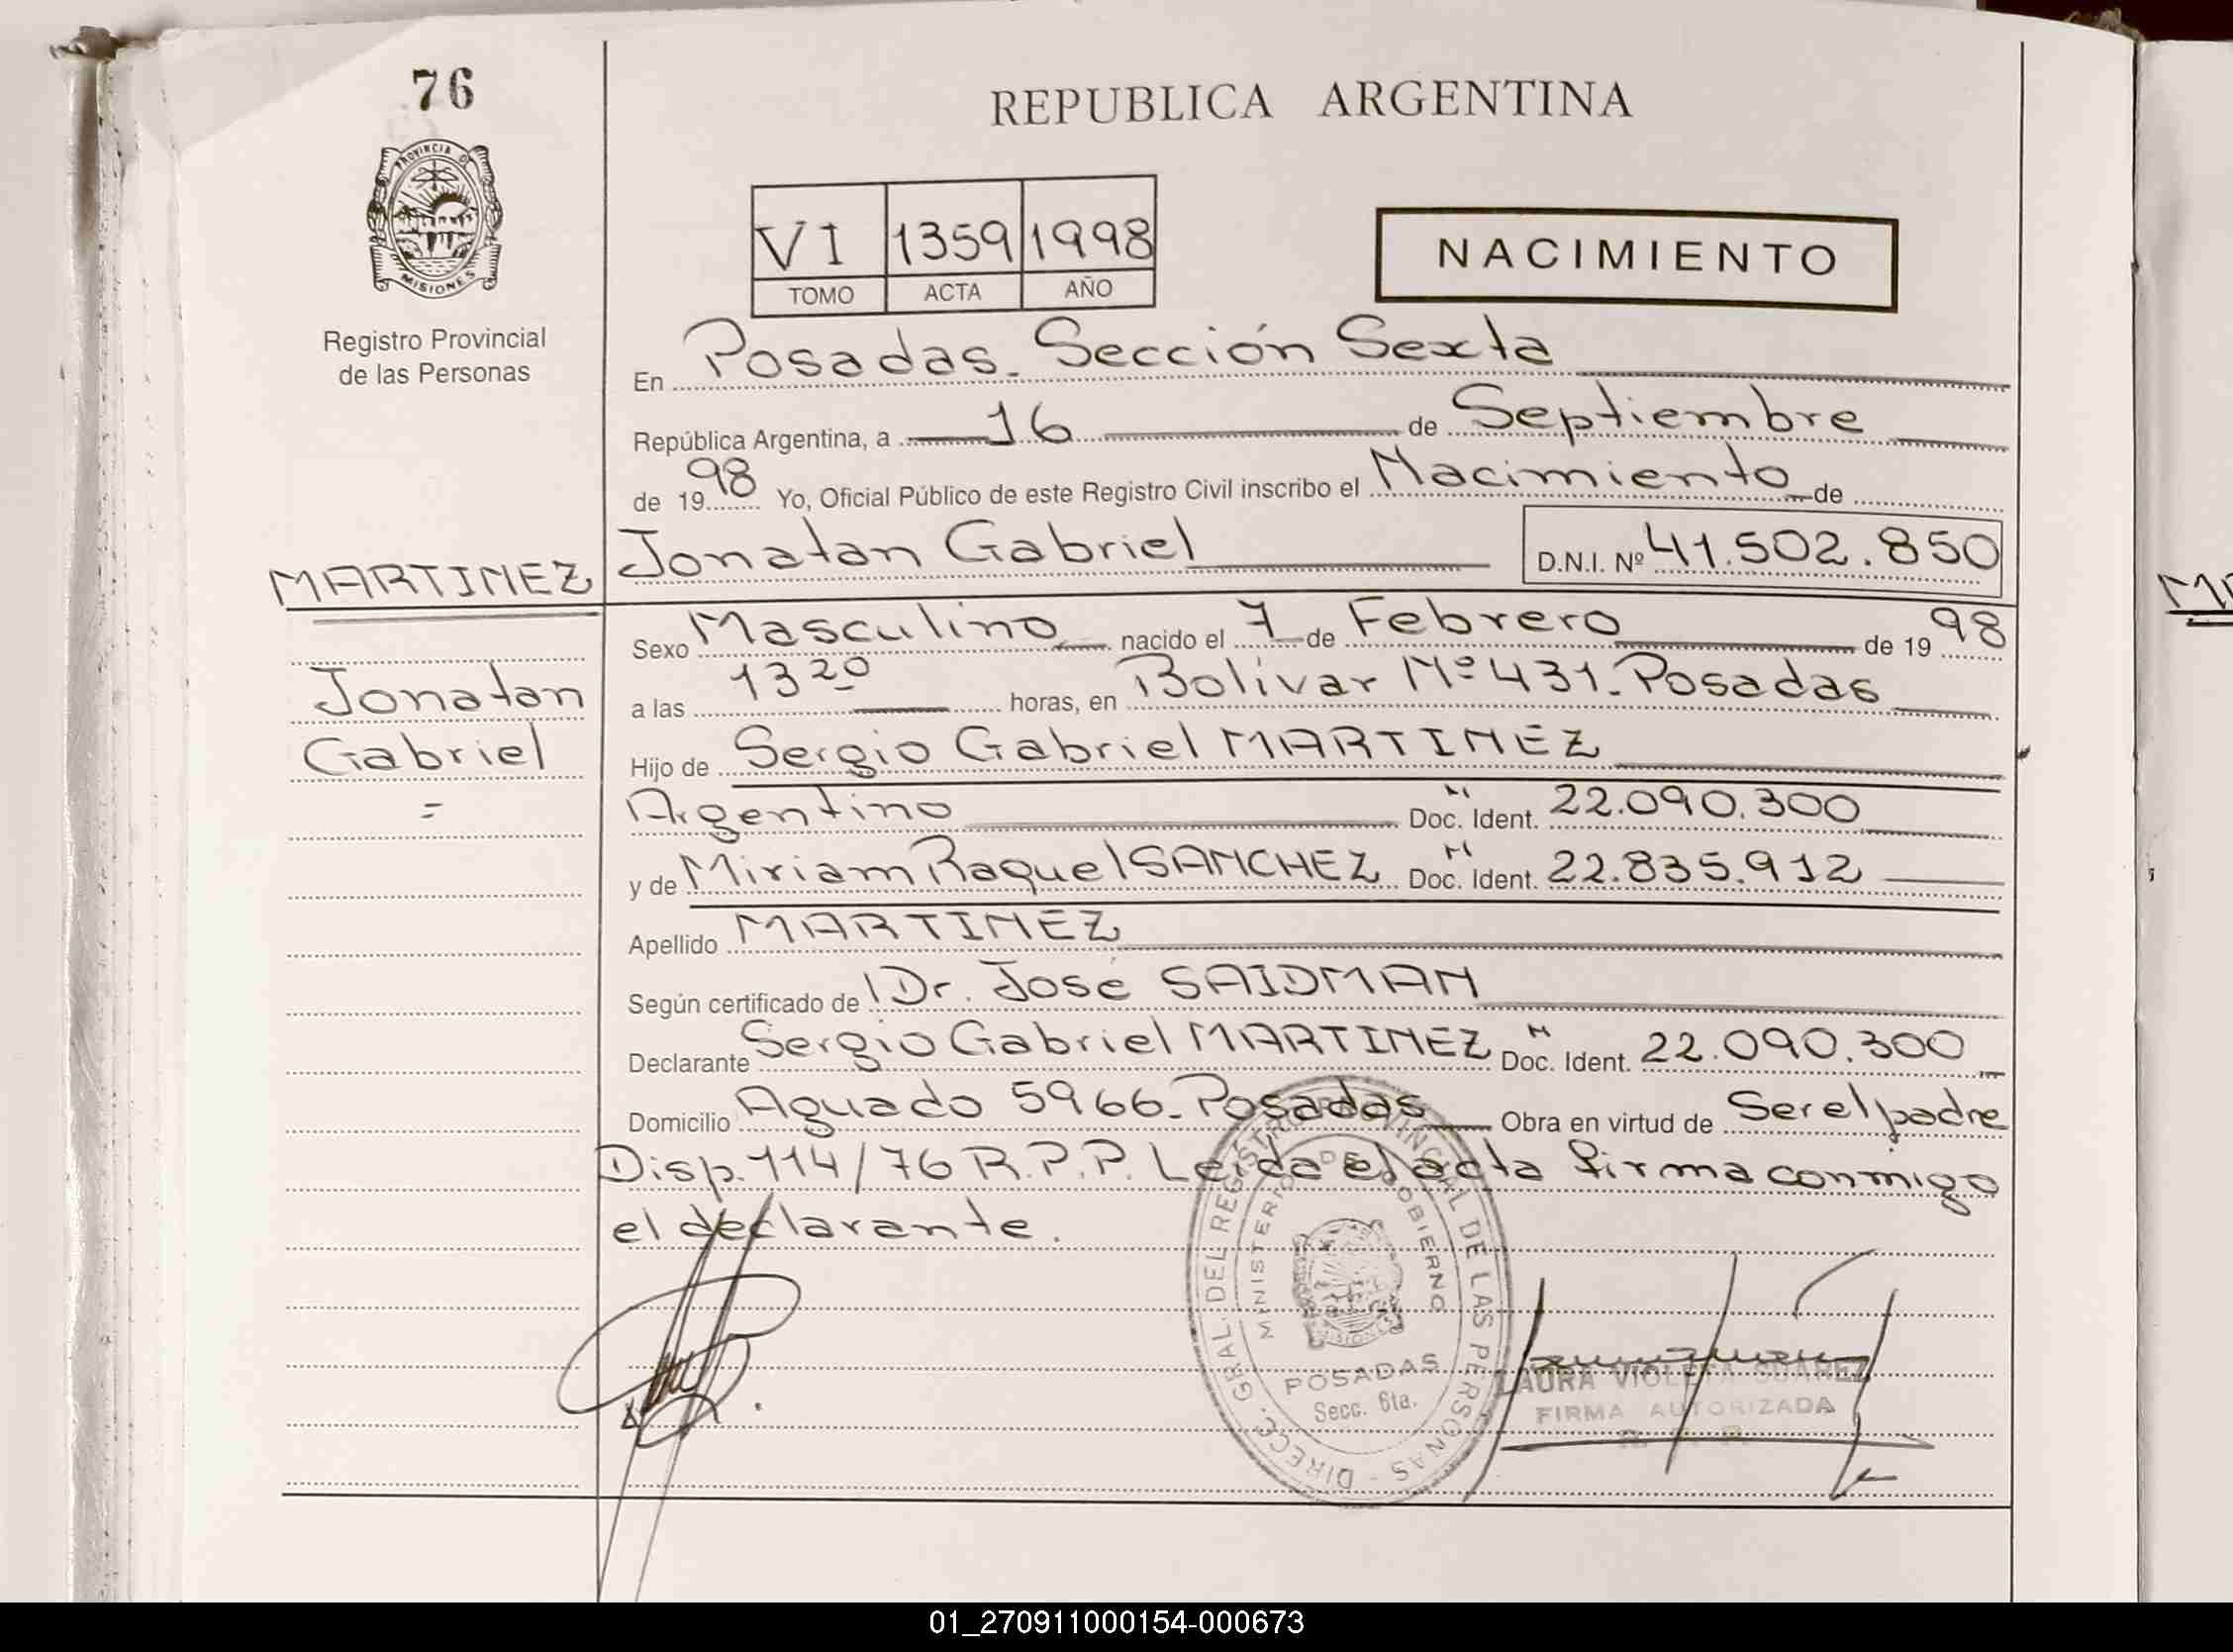 76
REPUBLICA ARGENTINA
PROVINCIA DE
MISIONES
VI 1359 1998
TOMO ACTA AÑO
NACIMIENTO
Registro Provincial
de las Personas
En Posadas. Sección Sexta
República Argentina, a 16 de Septiembre
de 1998 Yo, Oficial Público de este Registro Civil inscribo el Nacimiento de
MARTINEZ Jonatan Gabriel D.N.I. Nº 41.502.850
Sexo Masculino nacido el 7 de Febrero de 1998
Jonatan a las 13 20 horas, en Bolívar Nº 431. Posadas
Gabriel Hijo de Sergio Gabriel MARTINEZ
= Argentino M Doc. Ident. 22.090.300
y de Miriam Raquel SANCHEZ M Doc. Ident. 22.835.912
Apellido MARTINEZ
Según certificado de Dr. José SAIDMAN
Declarante Sergio Gabriel MARTINEZ M Doc. Ident. 22.090.300
Domicilio Aguado 5966. Posadas Obra en virtud de Ser el padre
Disp. 114/76 R.P.P. Leída el acta firma conmigo
el declarante.
DIRECC. GRAL. DEL REGISTRO PROVINCIAL DE LAS PERSONAS
MINISTERIO DE GOBIERNO
MISIONES
POSADAS
Secc. 6ta.
LAURA VIOLETA SUAREZ
FIRMA AUTORIZADA
01_270911000154-000673